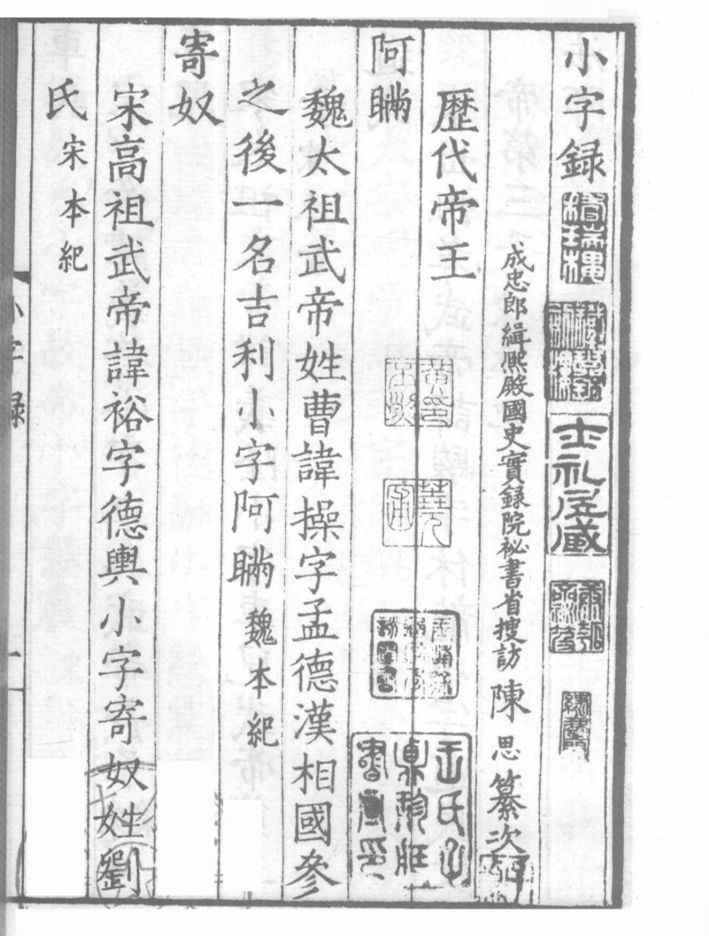 小字録
成忠郎緝熙殿國史實録院祕書省搜訪陳思纂次
歴代帝王
阿瞞
魏太祖武帝姓曹諱操字孟德漢相國參
之後一名吉利小字阿瞞魏本紀
寄奴
宋高祖武帝諱裕字德輿小字寄奴姓劉
氏宋本紀
小字録
一
士礼居藏